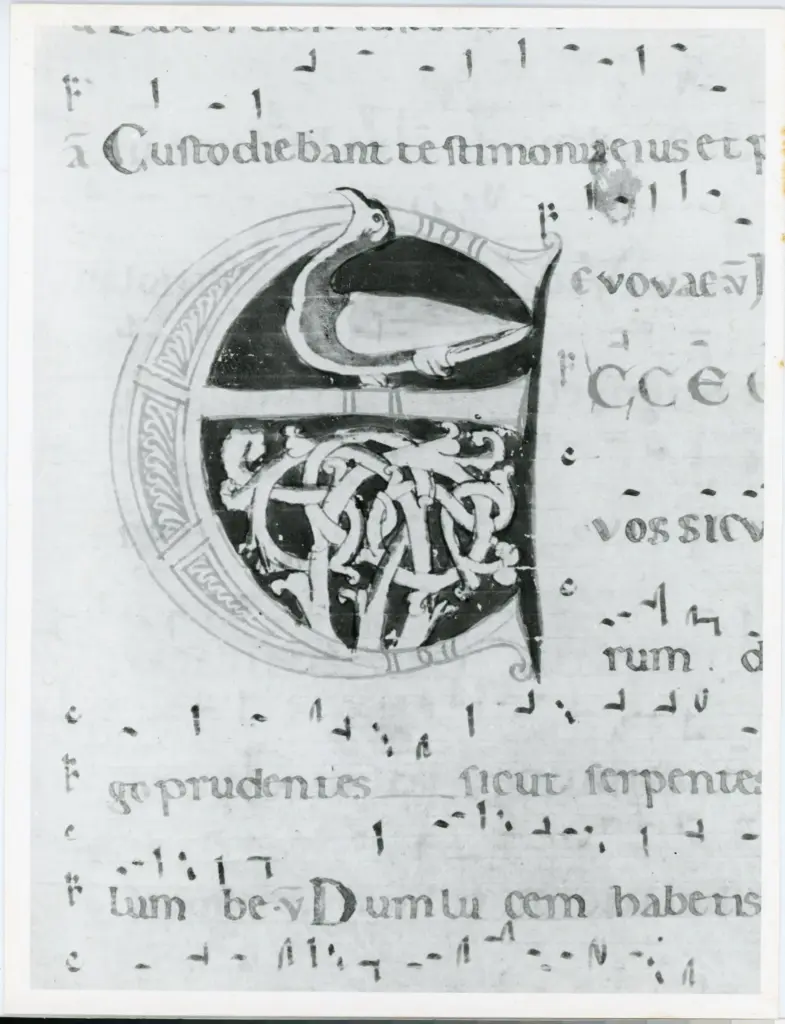 ā Custodiebant testimonia eius et p
evovae v̄
ECCE
vos sicv
rum. d
go prudentes sicut serpentes
lum be. v̄ Dum lucem habetis